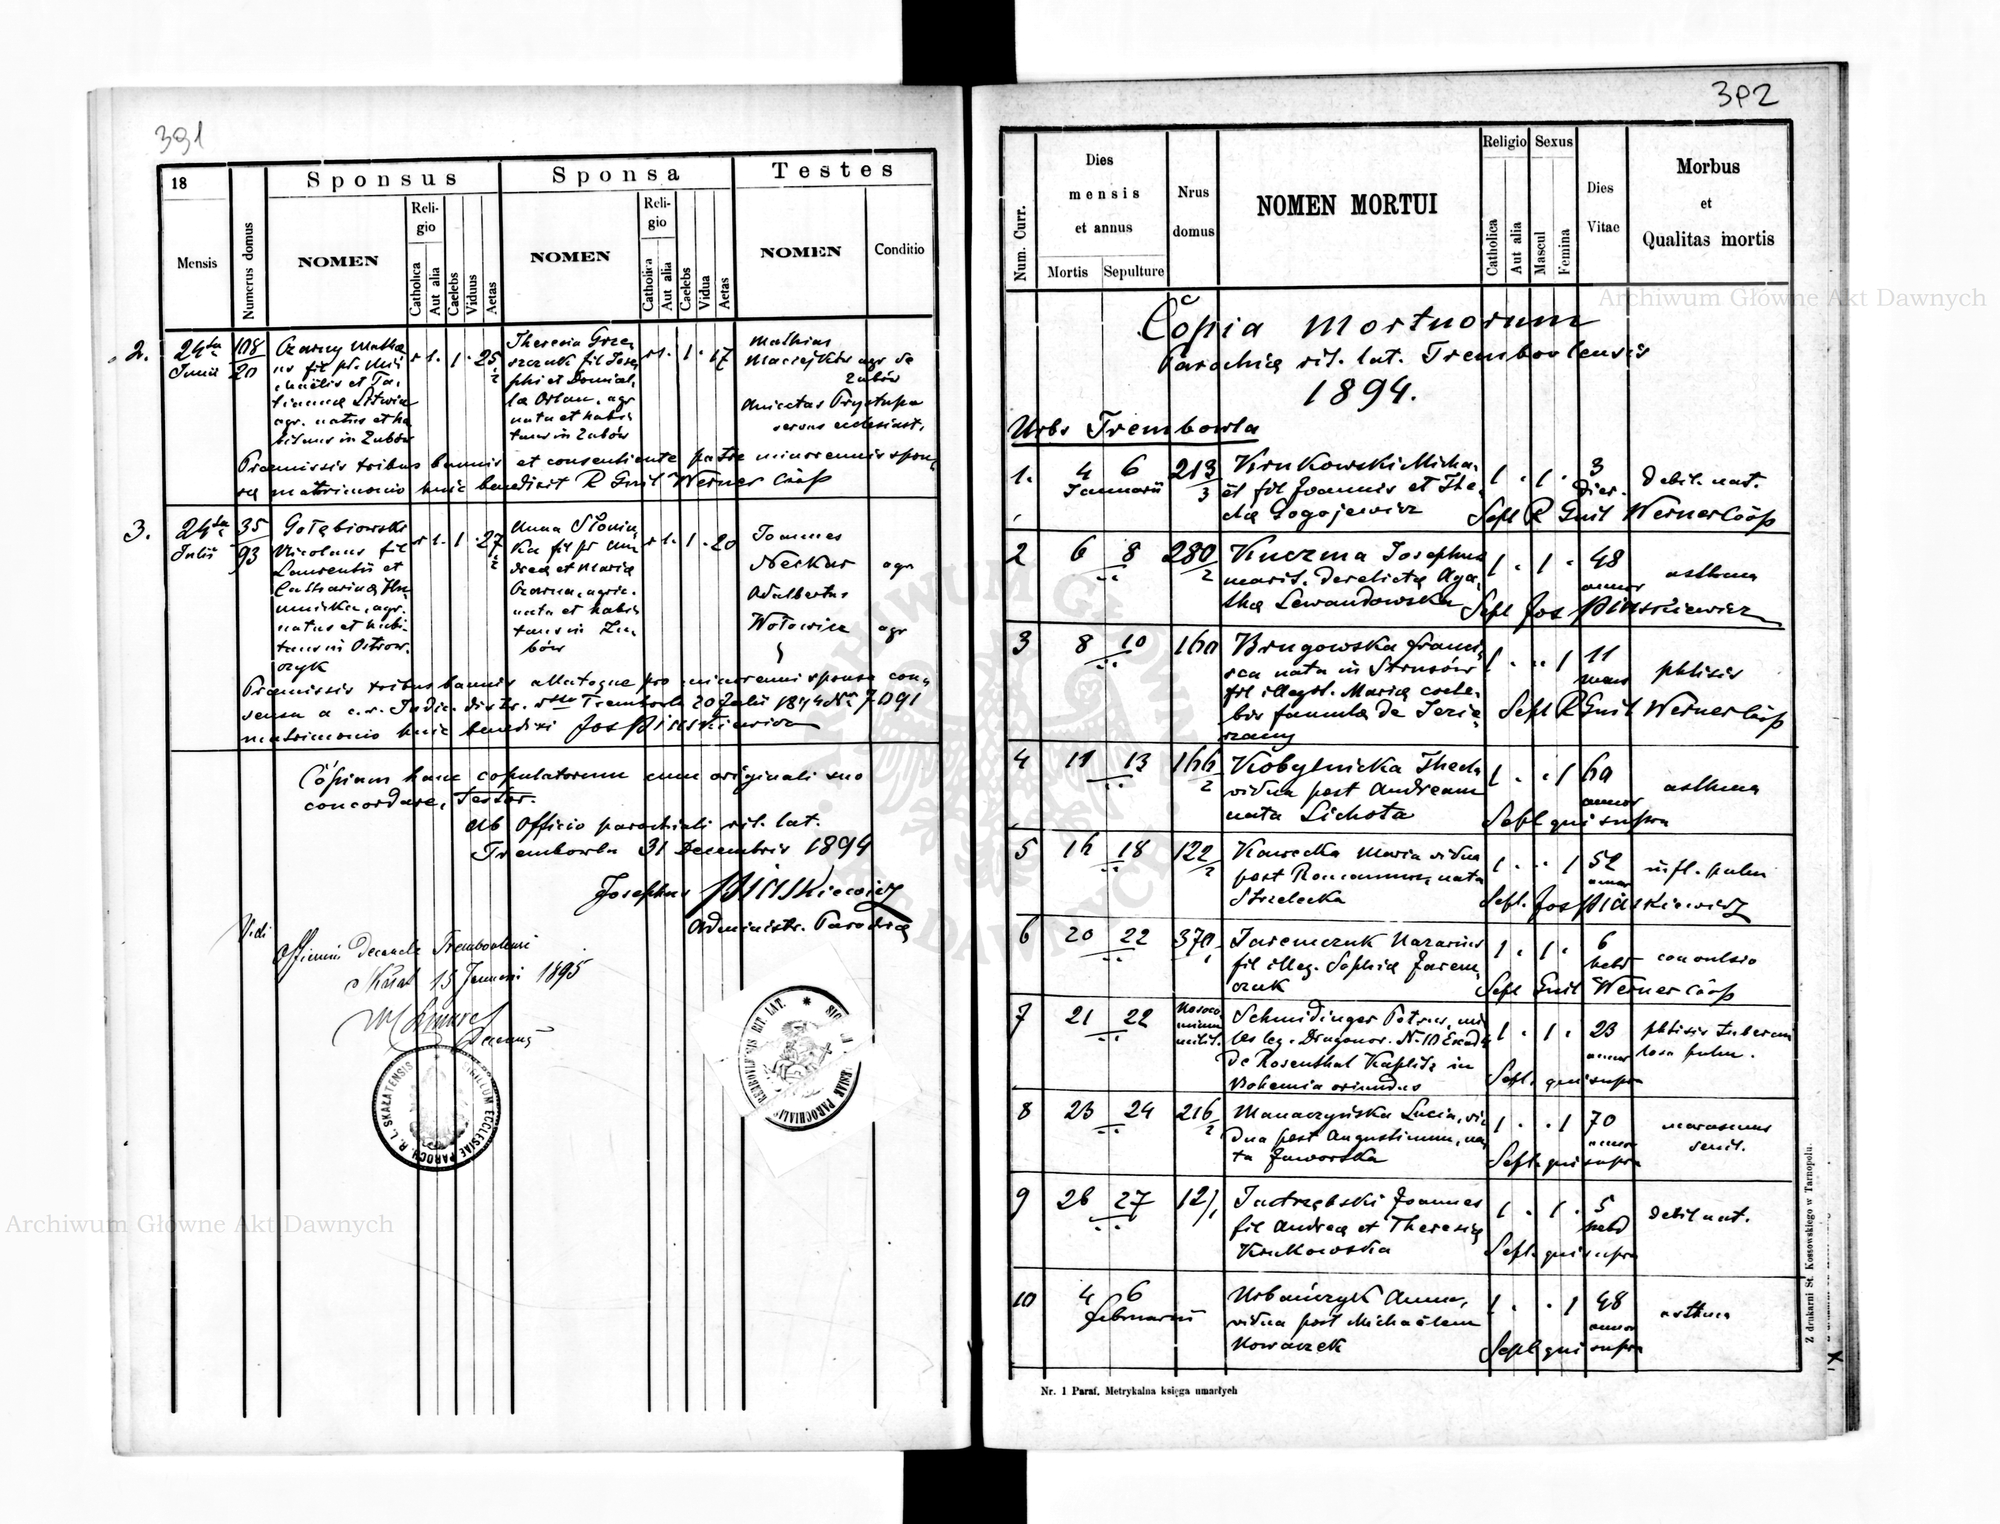 391
18
Sponsus
Sponsa
Testes
Mensis
Numerus domus
NOMEN
Reli-
gio
Catholica
Aut alia
Caelebs
Viduus
Aetas
NOMEN
Reli-
gio
Catholica
Aut alia
Caelebs
Vidua
Aetas
NOMEN
Conditio
2.
24ta
Junii
108
20
Czarny Mathe
us fil pt. Mi
chaëlis et Ta
tianna Litwin
agr. natus et ha
bitans in Zubów
r 1. 1 . 25
Theresia Grze
szczuk fil Jose
phi et Domicel
la Orłan, agr
nata et habi
tans in Zubów
r 1. 1 . 17
Mathias
Maciejków agr de
Zubów
Anicetus Prystupa
servus ecclesiast.
Praemissis tribus bannis et consentiente patre minorennis spon
sa matrimonio huic benedixit R Guil Werner Coop
3.
24ta
Julii
35
93
Gołębiowski
Nicolaus fil
Laurentii et
Catharina
agr.
natus et habi
tans in Ostrow
czyk
r 1. 1 . 27
Anna Słoniń
ka fil pt An
drea et Maria
Czarna, agric.
nata et habi
tans in Zu
bów
r 1. 1 . 20
Joannes
Neckar agr
Adalbertus
Wołowicz agr
Praemissis tribus bannis allatoque pro minorenni sponsa con
sensu a c. r. Judic. distr. dtto Trembowla 20 Julii 1894 No 7091
matrimonio huic benedixi Jos Pinskiewicz
Copiam hanc copulatorum cum originali suo
concordare, Testor.
Ab Officio parochiali rit. lat.
Trembowla 31 Decembris 1894
Josephus Pinskiewicz
Administr. Parochia
Vidi
Officium Decanale Trembowlensi
Skałat 15 Januarii 1895
Decanus
SIGILLUM ECCLESIAE PAROCH. R. L. SKAŁATENSIS
382
Num. Curr.
Dies
mensis
et annus
Mortis
Sepulture
Nrus
domus
NOMEN MORTUI
Religio
Catholica
Aut alia
Sexus
Mascul
Femina
Dies
Vitae
Morbus
et
Qualitas mortis
Copia Mortuorum
Parochia rit. lat. Trembovlensis
1894.
Urbs Trembowla
1. 4 6 213
Januarii 3
Krukowski Micha
ël fil Joannis et The
cla Gogojewicz
1 . 1 . 3
dier. debil. nat.
Sepl R Guil Werner Coop
2 6 8 280
2
Kuczma Josephus
marit. derelicta Aga
tha Lewandowska
1 . 1 . 48
annor asthma
Sepl Jos Pinskiewicz
3 8 10 160
Brugowska Franci
sca nata in Strusów
fil illegit. Maria coele
bis famula de Jezie
rzany
1 . . 1 11
mens phtisis
Sepl R Guil Werner Coop
4 11 13 166
2
Kobylnicka Thecla
vidua post Andream
nata Lichota
1 . . 1 60
annor asthma
Sepl qui supra
5 16 18 122
2
Kawecka Maria vidua
post Romanum, nata
Strzelecka
1 . . 1 52
annor infl. pulm
Sepl. Jos Pinskiewicz
6 20 22 370
1
Jaremczuk Nazarius
fil illeg. Sophia Jarem
czuk
1 . 1 . 6
hebd convulsio
Sepl Guil Werner Coop
7 21 22 Nosoco
mium
milit.
Schmidinger Petrus, mi
les leg. Dragonor. N. 10 Escadr
de Rosenthal Kaplitz in
Bohemia oriundus
1 . 1 . 23
annor phtisis tubercu
losa pulm.
Sepl. qui supra
8 23 24 216
2
Manaczyńska Lucia, vi
dua post Augustinum, na
ta Jaworska
1 . . 1 70
annor marasmus
senil.
Sepl. qui supra
9 26 27 12/1
Jastrzębski Joannes
fil Andrea et Theresia
Krukowska
1 . 1 . 5
hebd debil nat.
Sepl. qui supra
10 4 6
Februarii
Urbańczyk Anna,
vidua post Michaëlem
Nowaczek
1 . . 1 48
annor asthma
Sepl qui supra
Nr. 1 Paraf. Metrykalna księga umarłych
Z drukarni St. Kossowskiego w Tarnopolu.
Archiwum Główne Akt Dawnych
Archiwum Główne Akt Dawnych
ARCHIWUM GŁÓWNE AKT DAWNYCH